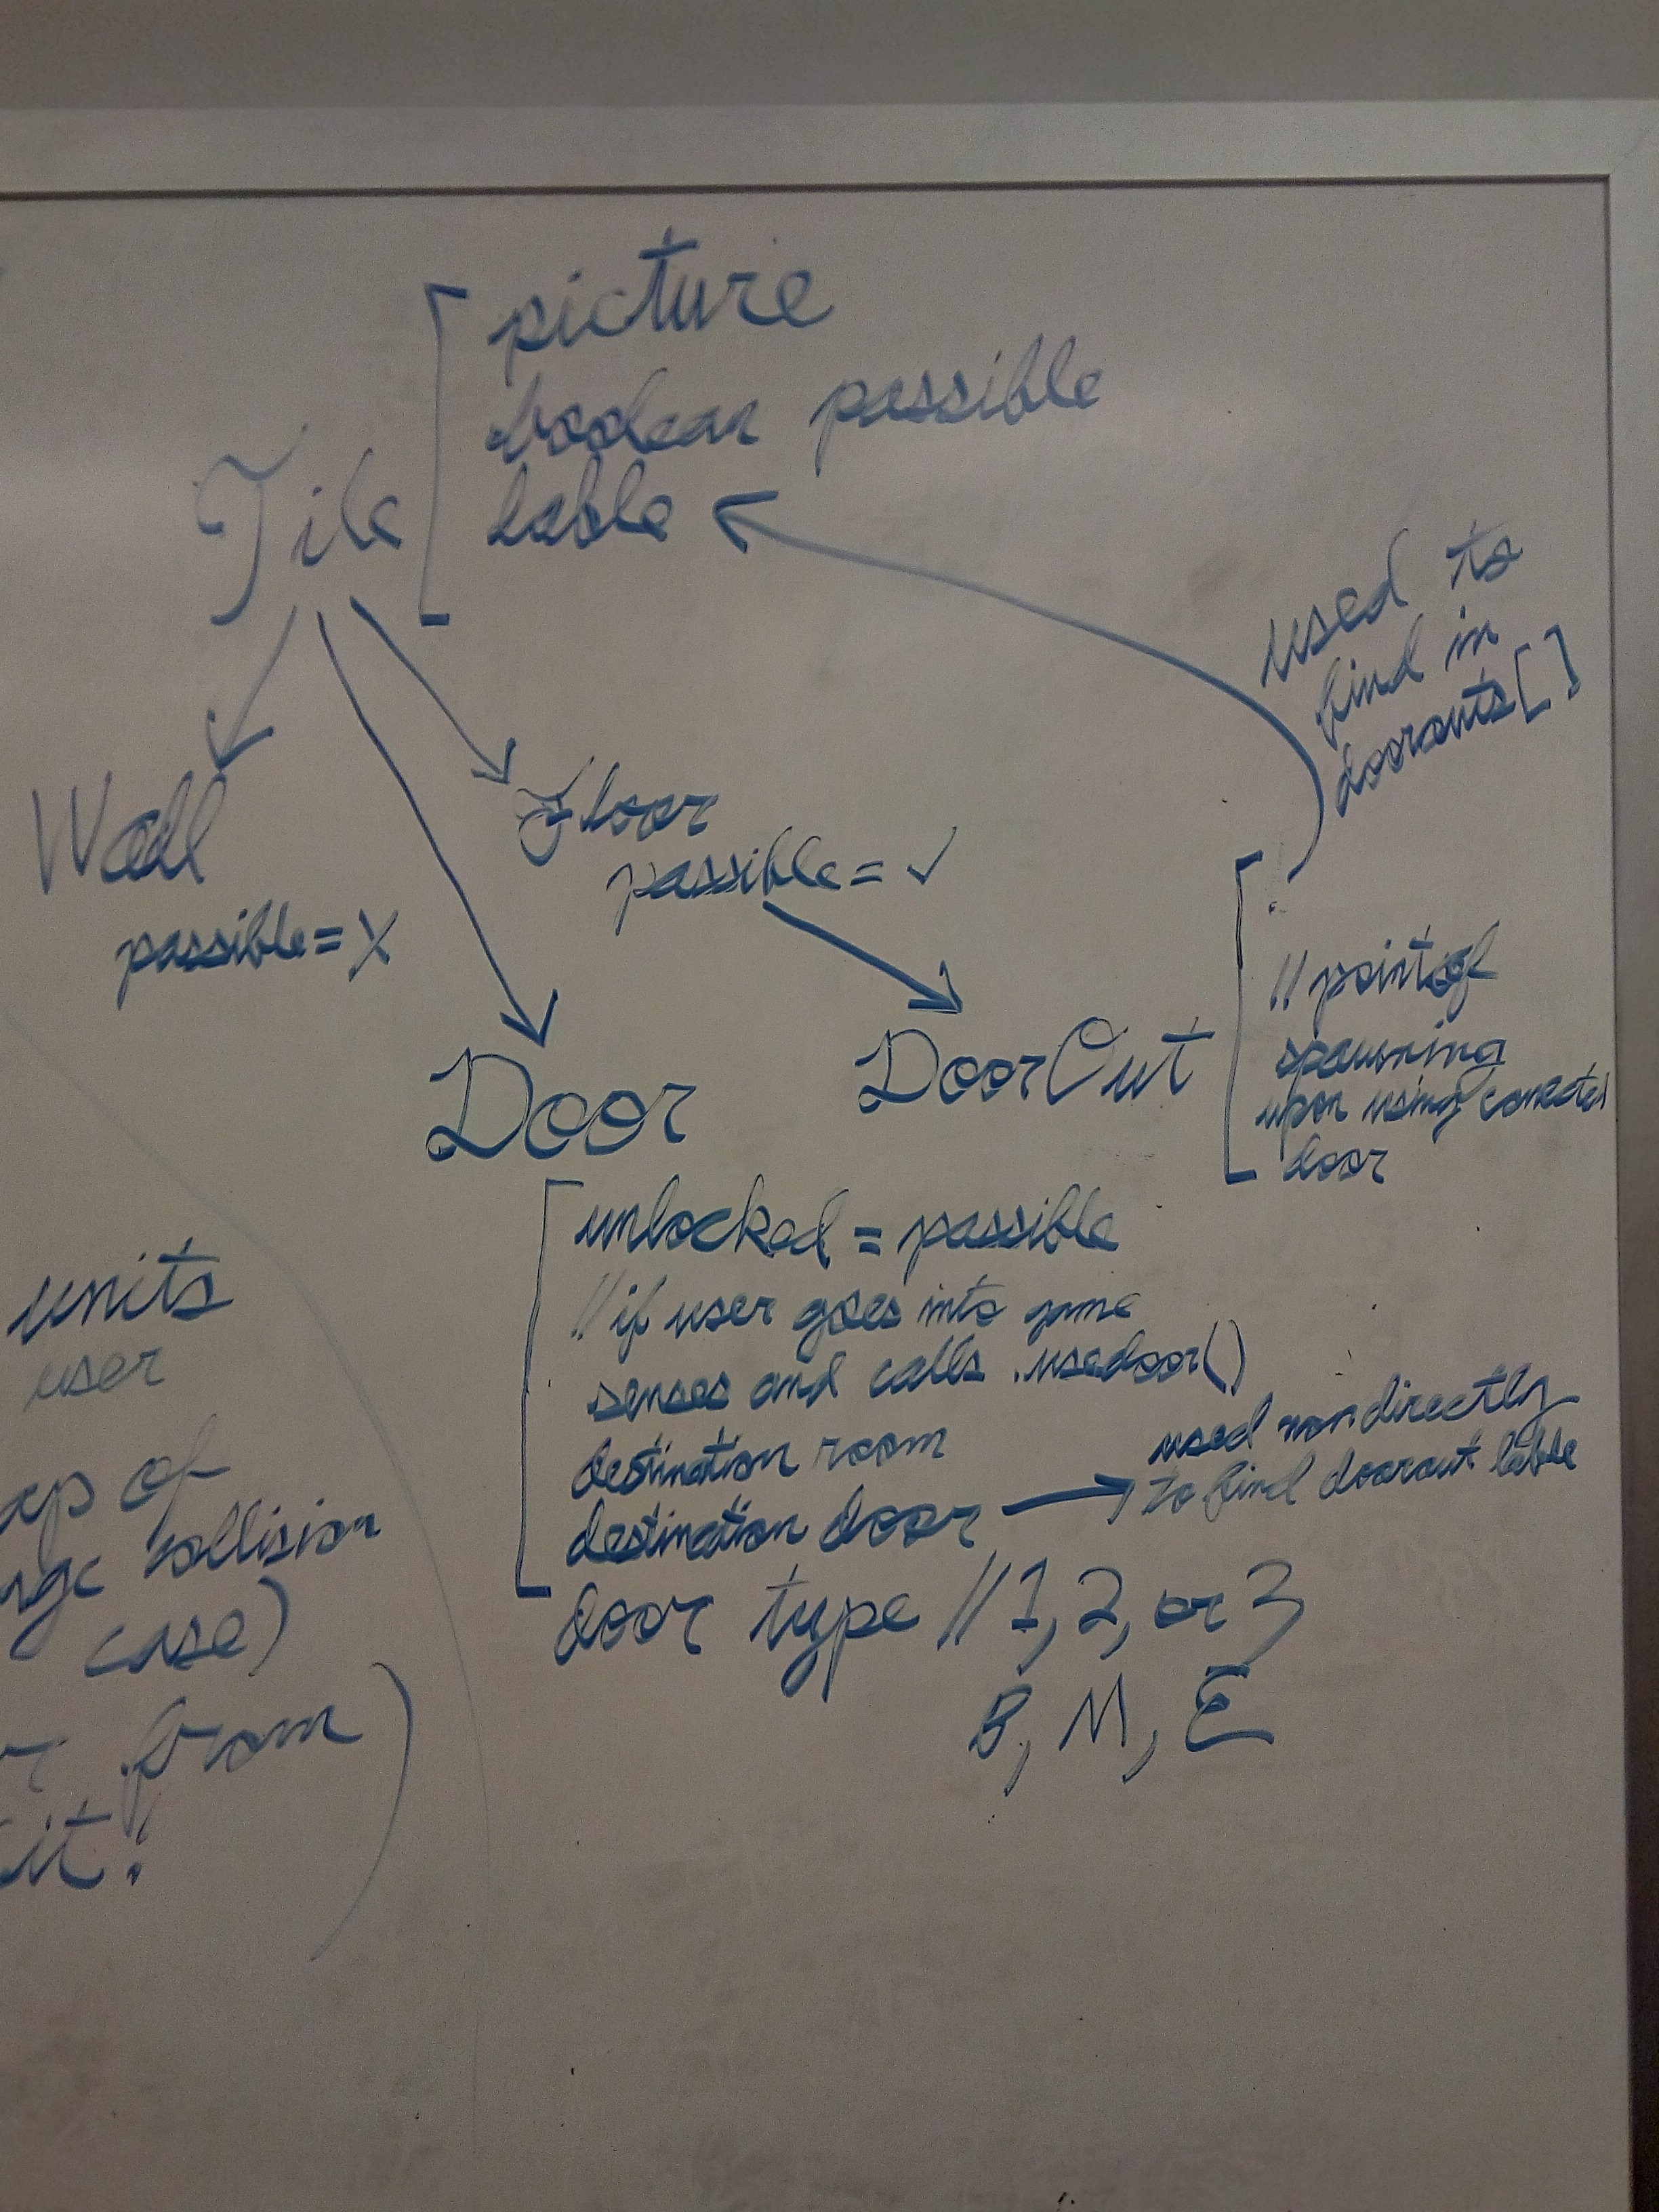 picture
boolean passible
lable
Tile
used to
find in
doorouts[]
Wall
passible = X
Floor
passible = ✓
DoorOut
// point of
spawning
upon using conected
door
Door
unlocked = passible
// if user goes into game
senses and calls .usedoor()
destination room
destination door
used nondirectly
to find doorout lable
door type // 1, 2, or 3
B, M, E
units
user
of
collision
case)
from
it!